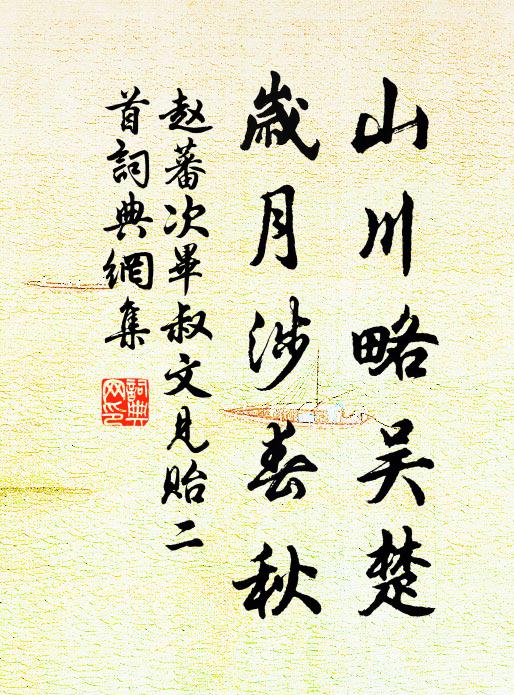 山川略吴楚
歲月涉春秋
赵蕃次畢叔文見貽二
首詞典網集
詞典
网印